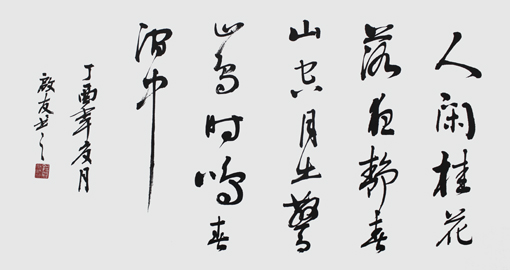 人闲桂花
落夜静春
山空月出驚
山鸟时鸣春
涧中
丁酉年夏月